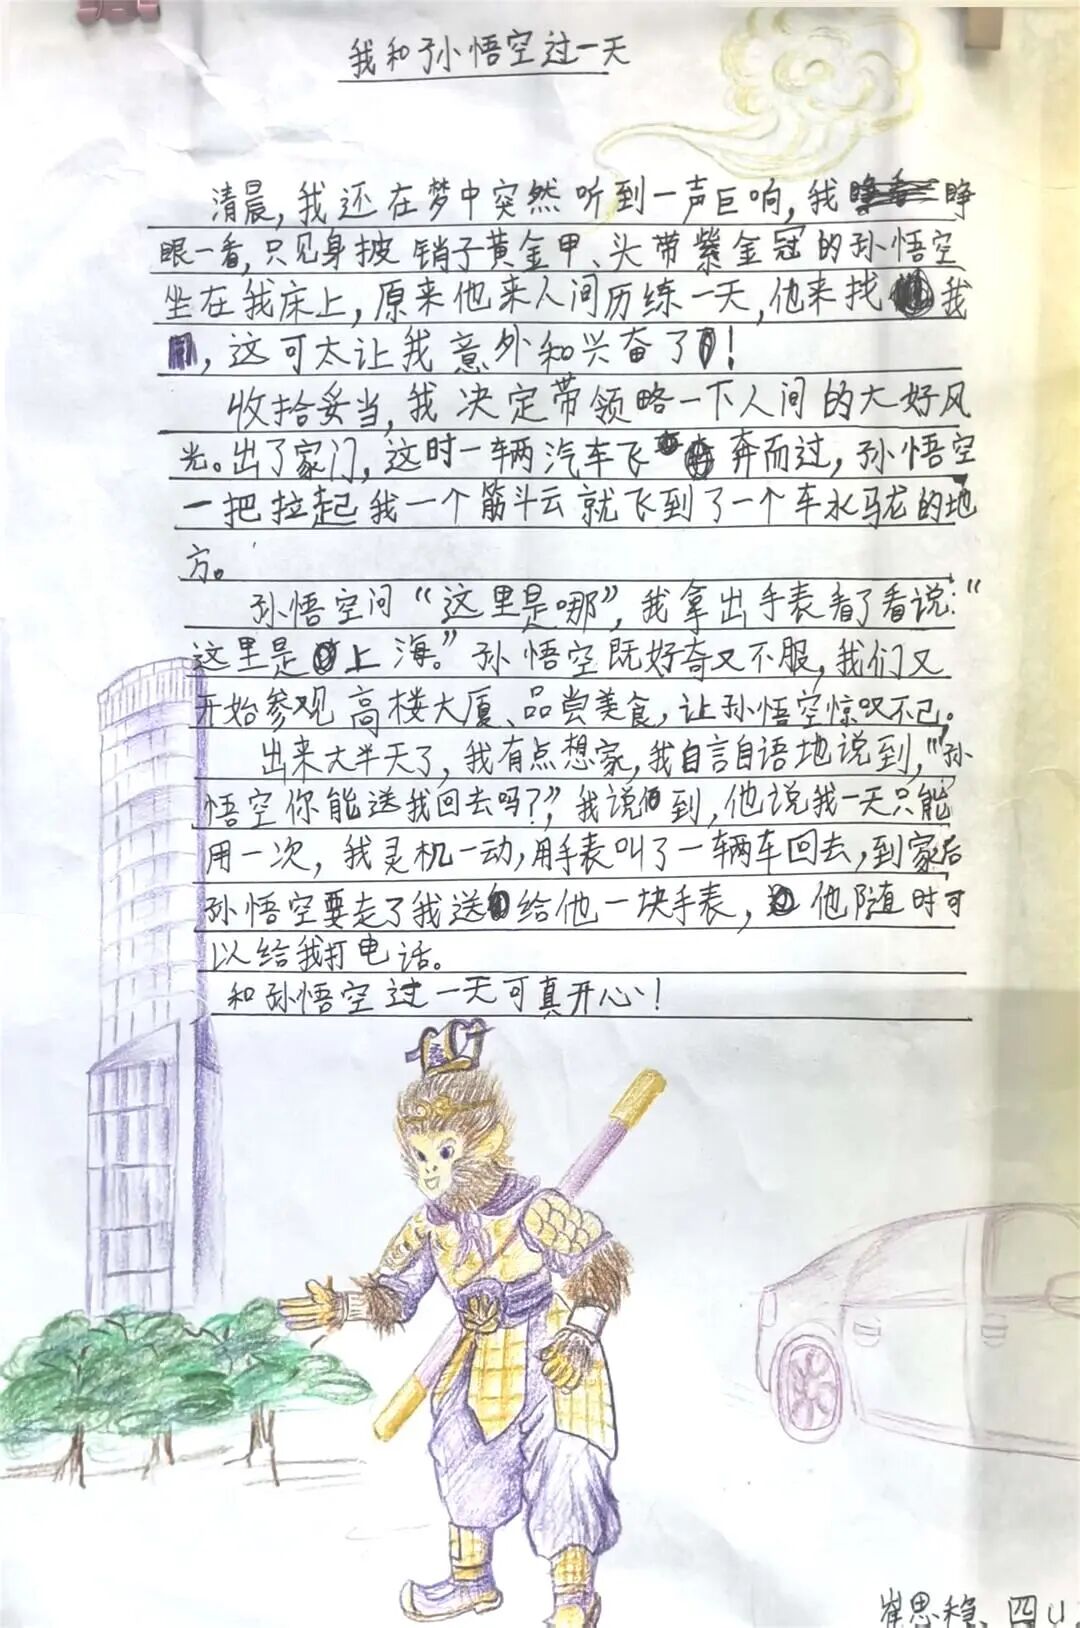 我和孙悟空过一天
清晨,我还在梦中突然听到一声巨响,我睁
眼一看,只见身披销子黄金甲、头带紫金冠的孙悟空
坐在我床上,原来他来人间历练一天,他来找我
,这可太让我意外和兴奋了!
收拾妥当,我决定带领略一下人间的大好风
光。出了家门,这时一辆汽车飞奔而过,孙悟空
一把拉起我一个筋斗云就飞到了一个车水马龙的地
方。
孙悟空问“这里是哪”,我拿出手表看了看说:“
这里是上海。”孙悟空既好奇又不服,我们又
开始参观高楼大厦、品尝美食,让孙悟空惊叹不已。
出来大半天了,我有点想家,我自言自语地说到,“孙
悟空你能送我回去吗?”,我说到,他说我一天只能
用一次,我灵机一动,用手表叫了一辆车回去,到家后
孙悟空要走了我送给他一块手表,他随时可
以给我打电话。
和孙悟空过一天可真开心!
崔思稳 四